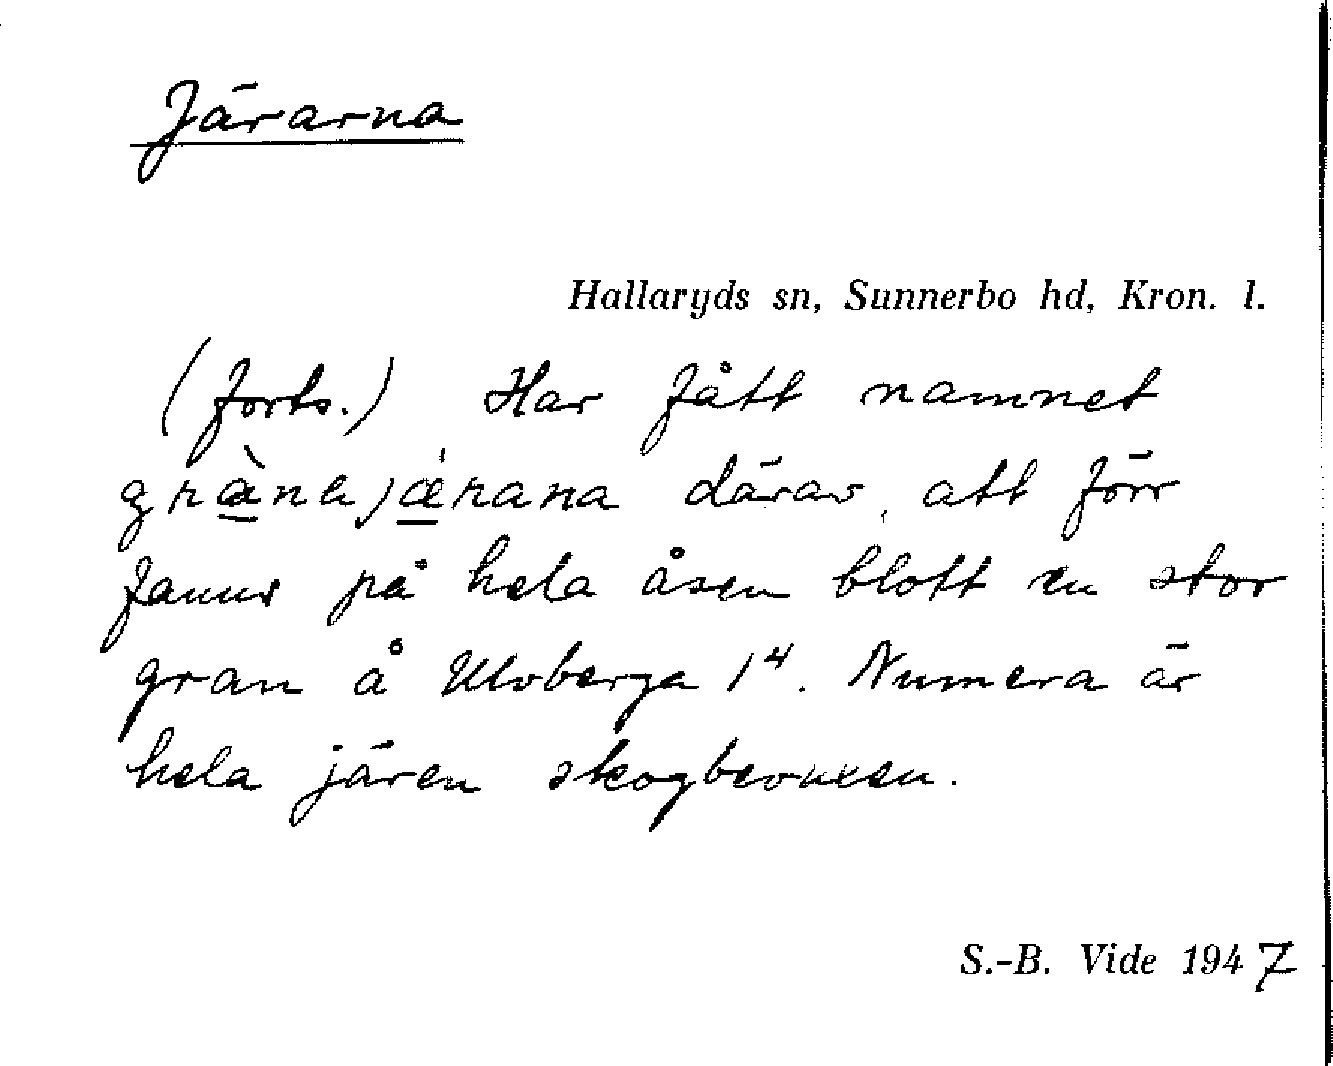 Järarna
Hallaryds sn, Sunnerbo hd, Kron. l.
(forts.) Har fått namnet
græ̀najǽrana därav, att förr
fanns på hela åsen blott en stor
gran å Ulvberga 1⁴. Numera är
hela jären skogbevuxen.
S.-B. Vide 1947